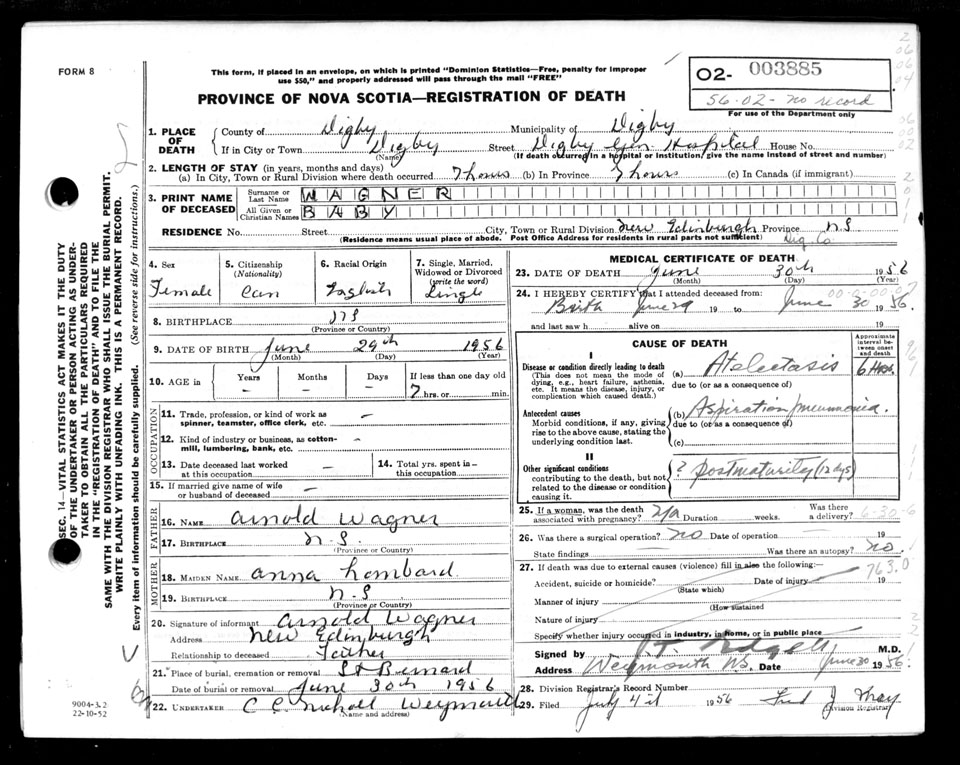 FORM 8
This form, if placed in an envelope, on which is printed "Dominion Statistics—Free, penalty for improper
use $50," and properly addressed will pass through the mail "FREE"
O2- 003885
56-02- no record
For use of the Department only
PROVINCE OF NOVA SCOTIA—REGISTRATION OF DEATH
1. PLACE OF DEATH
County of Digby Municipality of Digby
If in City or Town Digby Street Digby Gen Hospital House No.
(Name) (If death occurred in a hospital or institution, give the name instead of street and number)
2. LENGTH OF STAY (in years, months and days)
(a) In City, Town or Rural Division where death occurred 7 hours (b) In Province 7 hours (c) In Canada (if immigrant)
3. PRINT NAME OF DECEASED
Surname or Last Name WAGNER
All Given or Christian Names BABY
RESIDENCE No. Street City, Town or Rural Division New Edinburgh Province N.S
(Residence means usual place of abode. Post Office Address for residents in rural parts not sufficient) Dig. Co
4. Sex
Female
5. Citizenship
(Nationality)
Can
6. Racial Origin
English
7. Single, Married, Widowed or Divorced
(write the word)
Single
8. BIRTHPLACE N S
(Province or Country)
9. DATE OF BIRTH June 29th 1956
(Month) (Day) (Year)
10. AGE in Years – Months – Days – If less than one day old
7 hrs. or min.
OCCUPATION
11. Trade, profession, or kind of work as
spinner, teamster, office clerk, etc. –
12. Kind of industry or business, as cotton-
mill, lumbering, bank, etc. –
13. Date deceased last worked
at this occupation –
14. Total yrs. spent in
this occupation –
15. If married give name of wife
or husband of deceased –
FATHER
16. NAME Arnold Wagner
17. BIRTHPLACE N. S.
(Province or Country)
MOTHER
18. MAIDEN NAME Anna Lombard
19. BIRTHPLACE N. S
(Province or Country)
20. Signature of informant Arnold Wagner
Address New Edinburgh
Relationship to deceased Father
21. Place of burial, cremation or removal St Bernard
Date of burial or removal June 30th 1956
22. UNDERTAKER C C Nichall Weymouth
(Name and address)
MEDICAL CERTIFICATE OF DEATH
23. DATE OF DEATH June 30th 1956
(Month) (Day) (Year)
24. I HEREBY CERTIFY that I attended deceased from:
Birth June 29 19 to June 30 1956.
and last saw h alive on 19
CAUSE OF DEATH
Approximate interval between onset and death
I
Disease or condition directly leading to death
(This does not mean the mode of
dying, e.g., heart failure, asthenia,
etc. It means the disease, injury, or
complication which caused death.)
(a) Atelectasis 6 Hrs.
due to (or as a consequence of)
Antecedent causes
Morbid conditions, if any, giving
rise to the above cause, stating the
underlying condition last.
(b) Aspiration pneumonia.
due to (or as a consequence of)
(c)
II
Other significant conditions
contributing to the death, but not
related to the disease or condition
causing it.
? postmaturity (12 days)
25. If a woman, was the death
associated with pregnancy? N/a Duration weeks. Was there a delivery?
26. Was there a surgical operation? no Date of operation 19
State findings Was there an autopsy? no.
27. If death was due to external causes (violence) fill in also the following: 763.0
Accident, suicide or homicide? Date of injury 19
(State which)
Manner of injury
(How sustained
Nature of injury
Specify whether injury occurred in industry, in home, or in public place
Signed by M.D.
Address Weymouth N.S. Date June 30 1956
28. Division Registrar's Record Number
29. Filed July 4th 1956 Fred J
Division Registrar
SEC. 14—VITAL STATISTICS ACT MAKES IT THE DUTY
OF THE UNDERTAKER OR PERSON ACTING AS UNDER-
TAKER TO OBTAIN ALL THE PARTICULARS REQUIRED
IN THE "REGISTRATION OF DEATH" AND TO FILE THE
SAME WITH THE DIVISION REGISTRAR WHO SHALL ISSUE THE BURIAL PERMIT.
WRITE PLAINLY WITH UNFADING INK. THIS IS A PERMANENT RECORD.
Every item of information should be carefully supplied. (See reverse side for instructions.)
9004-3.2
22-10-52